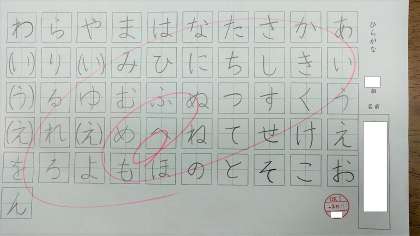 ひらがな
名前
あ い う え お
か き く け こ
さ し す せ そ
た ち つ て と
な に ぬ ね の
は ひ ふ へ ほ
ま み む め も
や (い) ゆ (え) よ
ら り る れ ろ
わ (い) (う) (え) を
ん